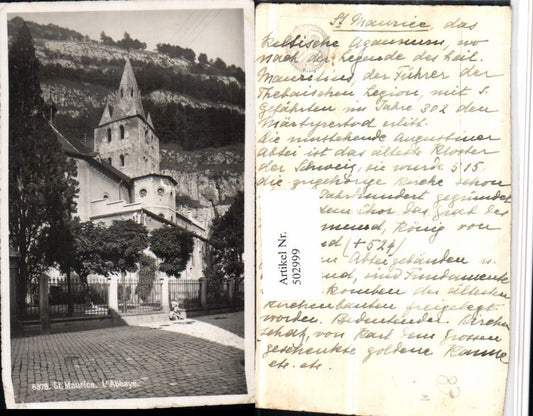 6878. St. Maurice. L'Abbaye.
St Maurice das
keltische Agaunum, wo
nach der Legende des heil.
Mauritius, der Führer der
Thebaischen Legion, mit s.
Gefährten im Jahre 302 den
Märtyrertod erlitt.
Die umstehende Augustiner
Abtei ist das älteste Kloster
der Schweiz, sie wurde 515,
die zugehörige Kirche schon
Jahrhundert gegründet
dem Chor das Grab des
mund, König von
nd (+ 524)
Abteigebäuden u.
nd, sind Fundamente
komben der ältesten
Kirchenbauten freigelegt
worden. Bedeutender Kirchen
schatz, von Karl dem Grossen
geschenkte goldene Kanne
etc. etc.
Artikel Nr.
502999